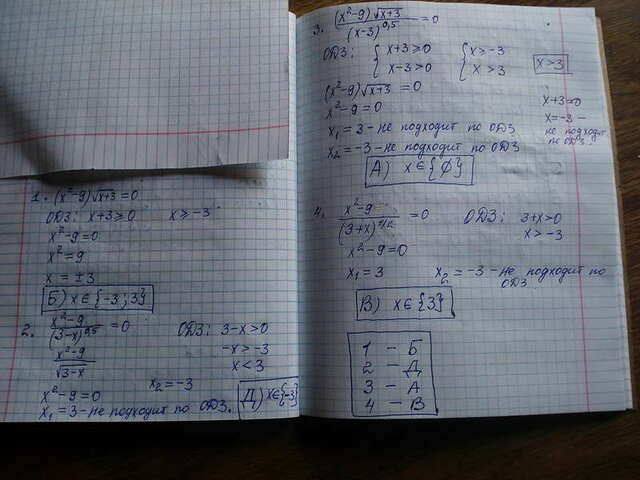 1. (x²-9)√x+3 = 0
ОДЗ: x+3≥0 x≥-3
x²-9=0
x²=9
x = ±3
Б) x∈{-3;3}
2. x²-9/(3-x)^0,5 = 0 ОДЗ: 3-x>0
x²-9/√3-x -x>-3
x<3
x²-9=0 x₂=-3
x₁=3-не подходит по ОДЗ. Д) x∈{-3}
3. (x²-9)√x+3/(x-3)^0,5 = 0
ОДЗ: { x+3≥0 { x≥-3
x-3>0 x>3 x>3
(x²-9)√x+3 = 0
x²-9=0 x+3=0
x₁=3-не подходит по ОДЗ x=-3-
не подходит
по ОДЗ
x₂=-3-не подходит по ОДЗ
А) x∈{∅}
4. x²-9/(3+x)^1/2 = 0 ОДЗ: 3+x>0
x>-3
x²-9=0
x₁=3 x₂=-3-не подходит по
ОДЗ
В) x∈{3}
1 - Б
2 - Д
3 - А
4 - В